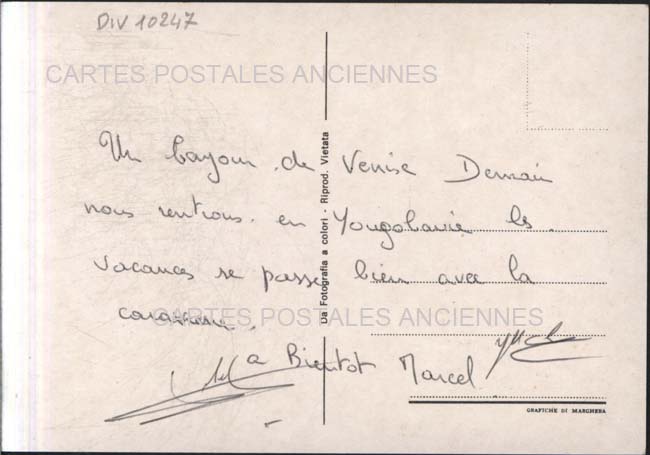 DIV 10247
CARTES POSTALES ANCIENNES
Un bonjour de Venise Demain
nous rentrons en Yougolavie les
vacances se passe bien avec la
caravane.
CARTES POSTALES ANCIENNES
a Bientot Marcel
Da Fotografia a colori - Riprod. Vietata
GRAFICHE DI MARGHERA